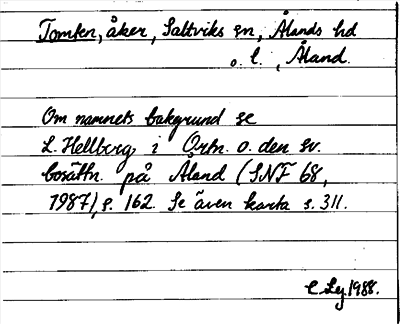 Tomten, åker, Saltviks sn, Ålands hd
o. l., Åland.
Om namnets bakgrund se
L. Hellberg i Ortn. o. den sv.
bosättn. på Åland (SNF 68,
1987), s. 162. Se även karta s. 311.
C Ley 1988.